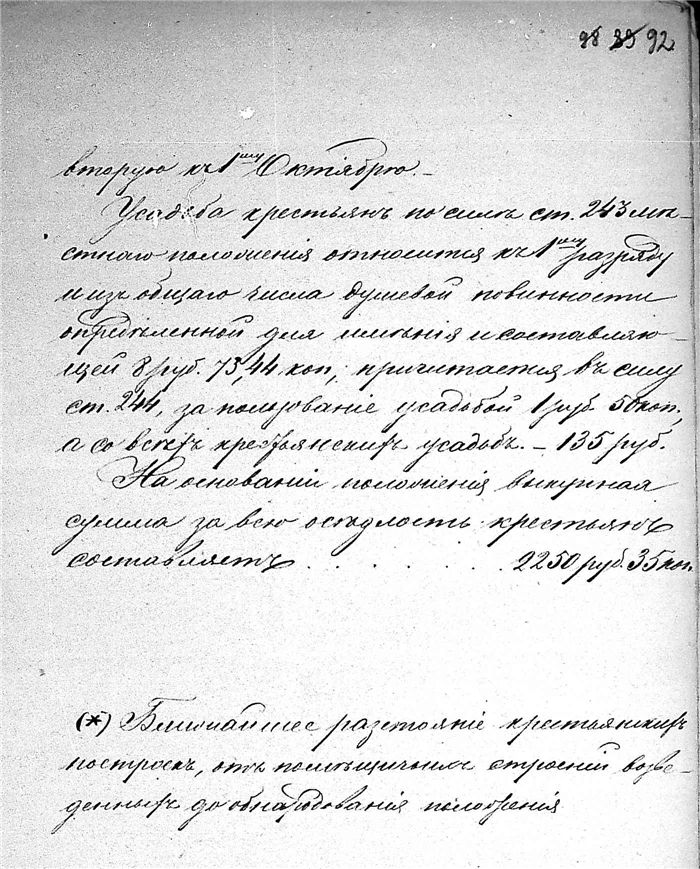 98 89 92
вторую къ 1му Октябрю.-
Усадьба крестьянъ по силѣ ст. 243 мѣ-
стнаго положенія относится къ 1му разряду
и изъ общаго числа душевой повинности
опредѣленной для имѣнія и составляю-
щей 8 руб. 75,44 коп, причитается въ силу
ст. 244, за пользованіе усадьбой 1 руб 50 коп,
а со всѣхъ крестьянскихъ усадьбъ. - 135 руб.
На основаніи положенія выкупная
сумма за всю осѣдлость крестьянъ
составляетъ . . . . . . 2250 руб. 35 коп.
(*) Ближайшее разстояніе крестьянскихъ
построекъ, отъ помѣщичьихъ строеній возве-
денныхъ до обнародованія положенія